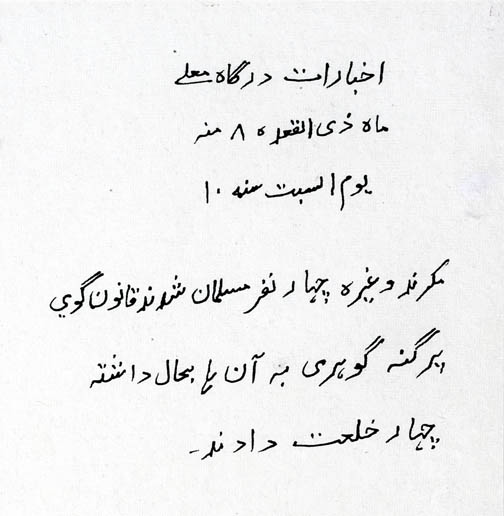 اخبارات درگاه معلے
ماه ذی القعده ۸ منه
یوم السبت سنه ۱۰
مکرند وغیره چهار نفر مسلمان شدند قانون گوي
پرگنه گوهری به آن ها بحال داشته
چهار خلعت دادند-